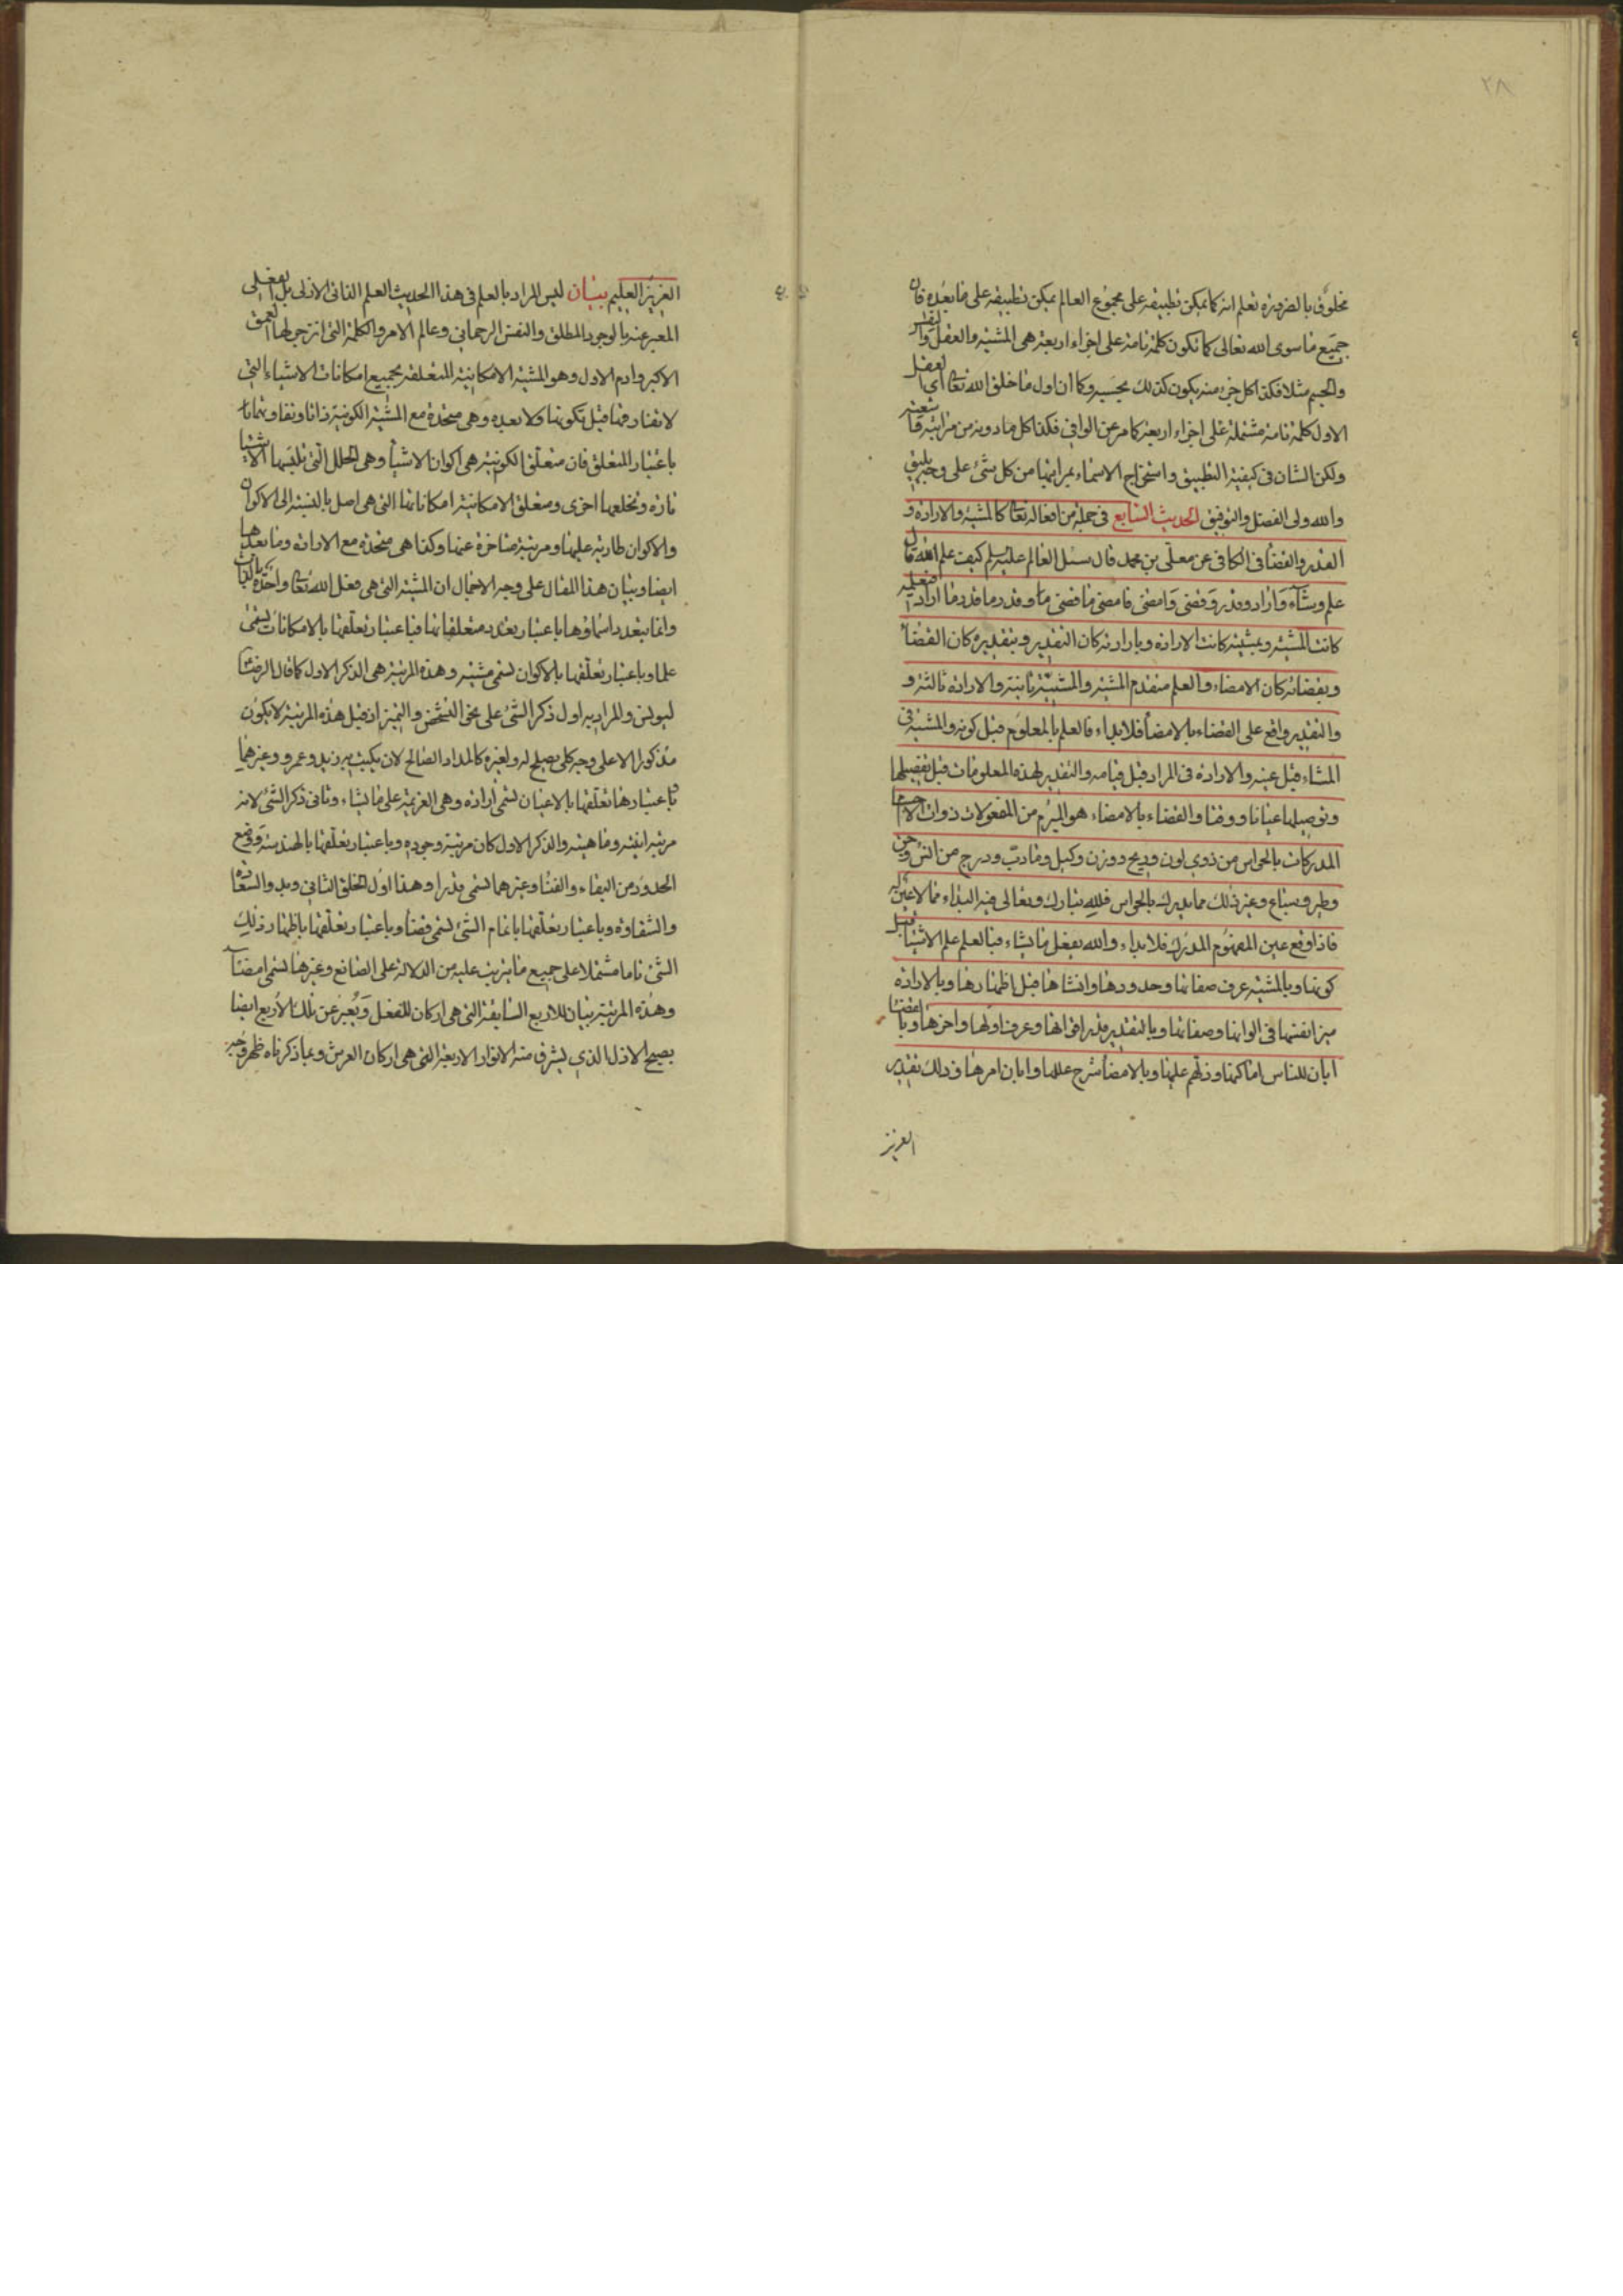 ٢٨
مخلوق بالضرورة تعلم انه كما يمكن تطبيقه على مجموع العالم يمكن تطبيقه على ما بعده فان
جميع ما سوى الله تعالى كما تكون كلمة تامة على اجزاء اربعة هى المشية والعقل والنفس
والجسم مثلا فكذا كل جزء منه يكون كذلك بحسبه وكما ان اول ما خلق الله تعا اى العقل
الاول كلمة تامة مشتملة على اجزاء اربعة كما مر عن الوافى فكذا كل ما دونه من مراتبه
ولكن الشان فى كيفية التطبيق واستخراج الاسماء بمراتبها من كل شئ على وجه يليق
والله ولى الفضل والتوفيق الحديث السابع فى جملة من افعاله تعا كالمشية والارادة و
القدر والقضأ فى الكافى عن معلى بن محمد قال سئل العالم عليه سلم كيف علم الله قال
علم وشآء واراد وقدر وقضى وامضى فامضى ما قضى وقدر ما اراد فبعلمه
كانت المشية وبمشيته كانت الارادة وبارادته كان التقدير وبتقديره كان القضأ
وبقضائه كان الامضاء والعلم متقدم المشية والمشية ثانية والارادة ثالثة و
والتقدير واقع على القضاء بالامضأ فلا بداء فالعلم بالمعلوم قبل كونه والمشية فى
المشاء قبل عينه والارادة فى المراد قبل قيامه والتقدير لهذه المعلومات قبل تفصيلها
وتوصيلها عيانا ووقتا والقضاء بالامضاء هو المبرم من المفعولات ذوات الاجسام
المدركات بالحواس من ذوى لون وريح ووزن وكيل وما دب ودرج من انس وجن
وطير وسباع وغير ذلك مما يدرك بالحواس فلله تبارك وتعالى فيه البداء مما لا عين له
فاذا وقع عين المفهوم المدرك فلا بداء والله يفعل ما يشاء فبالعلم علم الاشيا قبل
كونها وبالمشية عرف صفاتها وحدودها وانشاها قبل اظهارها وبالارادة
ميز انفسها فى الوانها وصفاتها وبالتقدير قدر اقواتها وعرف اولها واخرها وبالقضا
ابان للناس اماكنها ودلهم عليها وبالامضأ شرح عللها وابان امرها وذلك تقدير
العزيز
العزيز العليم بيان ليس المراد بالعلم فى هذا الحديث العلم الذاتى الازلى بل الفعلى
المعبر عنه بالوجود المطلق والنفس الرحمانى وعالم الامر والكلمة التى انزجر لها العمق
الاكبر وادم الاول وهو المشية الامكانية المتعلقة بجميع امكانات الاشياء التى
لا تفاد فيها قبل تكونها ولا بعده وهى متحدة مع المشية الكونية ذاتا
باعتبار المتعلق فان متعلق الكونية هى اكوان الاشيأ وهى الحلل التى تلبسها الاشيا
تارة وتخلعها اخرى ومتعلق الامكانية امكاناتها التى هى اصل بالنسبة الى الاكوان
والاكوان طارية عليها ومرتبة متاخرة عنها وكذا هى متحدة مع الارادة وما بعدها
ايضا وبيان هذا المقال على وجه الاجمال ان المشية التى هى فعل الله تعا واحدة بالذات
وانما تعدد اسماؤها باعتبار تعدد متعلقاتها فباعتبار تعلقها بالامكانات تسمى
علما وباعتبار تعلقها بالاكوان تسمى مشية وهذه المرتبة هى الذكر الاول كما قال الرضا
ليونس والمراد به اول ذكر الشئ على نحو التشخص والتميز اذ قبل هذه المرتبة لا يكون
مذكورا الا على وجه كلى يصلح له ولغيره كالمداد الصالح لان يكتب به زيد وعمرو وغيرهما
وباعتبار تعلقها بالاعيان تسمى ارادة وهى العزيمة على ما يشاء وثانى ذكر الشئ لانه
مرتبة انيته وماهيته والذكر الاول كان مرتبة وجوده وباعتبار تعلقها بالهندسة ووضع
الحدود من البقاء والفنا وغيرهما تسمى قدرا وهذا اول الخلق الثانى وبدو السعادة
والشقاوة وباعتبار تعلقها باتمام الشئ تسمى قضأ وباعتبار تعلقها باظهار ذلك
الشئ تاما مشتملا على جميع ما يترتب عليه من الدلالة على الصانع وغيرها تسمى امضآء
وهذه المرتبة بيان للاربع السابقة التى هى اركان للفعل ويعبر عن تلك الاربع ايضا
بصبح الازل الذى يشرق منه الانوار الاربعة التى هى اركان العرش وبما ذكرناه ظهر وجه